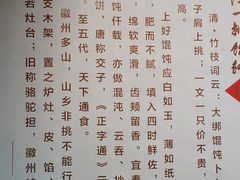 清·竹枝词云：大梆馄饨卜
子肩上挑；一文一只价不贵，
上好馄饨应白如玉，薄如纸
肥而不腻，填入四时鲜佐，
绵软爽滑，齿颊留香。宜春
饨仟载，亦做混沌、云吞、抄
饼，唐称交子，《正字通》云
。至五代，天下通食。
徽州多山，山乡非挑不能行
支木架，置之炉灶、皮、馅、
若灶台；旧称骆驼担，徽州